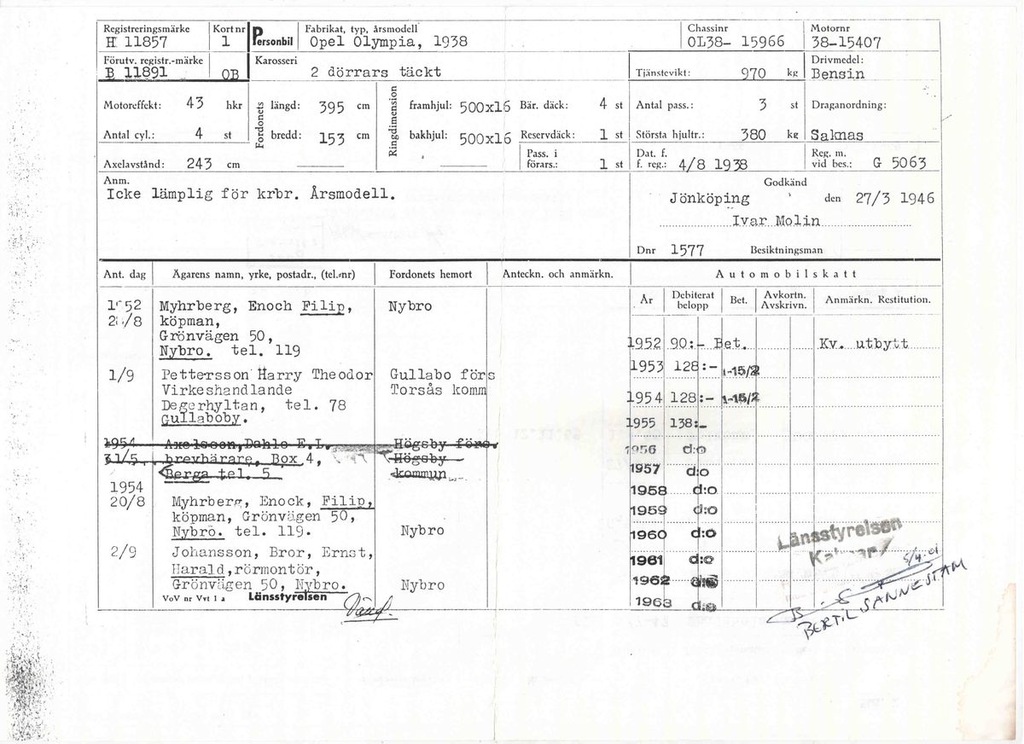 Registreringsmärke Kort nr Personbil Fabrikat, typ, årsmodell Chassinr Motornr
H 11857 1 Opel Olympia, 1938 OL38- 15966 38-15407
Förutv. registr.-märke Karosseri Drivmedel:
B 11891 OB 2 dörrars täckt Tjänstevikt: 970 kg Bensin
Motoreffekt: 43 hkr Fordonets längd: 395 cm Ringdimension framhjul: 500x16 Bär. däck: 4 st Antal pass.: 3 st Draganordning:
Antal cyl.: 4 st bredd: 153 cm bakhjul: 500x16 Reservdäck: 1 st Största hjultr.: 380 kg Saknas
Axelavstånd: 243 cm Pass. i förars.: 1 st Dat. f. f. reg.: 4/8 1938 Reg. m. vid bes.: G 5063
Anm. Godkänd
Icke lämplig för krbr. Årsmodell. Jönköping den 27/3 1946
Ivar Molin
Dnr 1577 Besiktningsman
Ant. dag Ägarens namn, yrke, postadr., (tel.-nr) Fordonets hemort Anteckn. och anmärkn. Automobilskatt
År Debiterat belopp Bet. Avkortn. Avskrivn. Anmärkn. Restitution.
1952 Myhrberg, Enoch Filip, Nybro
2 /8 köpman,
Grönvägen 50,
Nybro. tel. 119
1952 90:- Bet. Kv. utbytt
1/9 Pettersson Harry Theodor Gullabo förs
1953 128:- 1-15/2
Virkeshandlande Torsås komm
Degerhyltan, tel. 78
1954 128:- 1-15/2
Gullaboby.
1955 138:-
1954 Axelsson, Dahlo E.L. Högsby förs.
31/5 brevbärare, Box 4, Högsby
1956 d:o
Berga tel. 5 kommun
1957 d:o
1954
1958 d:o
20/8 Myhrberg, Enock, Filip,
köpman, Grönvägen 50,
1959 d:o
Nybro. tel. 119. Nybro
1960 d:o Länsstyrelsen
2/9 Johansson, Bror, Ernst,
1961 d:o 5/4-01
Harald, rörmontör,
1962 d:o
Grönvägen 50, Nybro. Nybro
VoV nr Vvt 1 a Länsstyrelsen
1963 d:o
BERTIL SANNESTAM